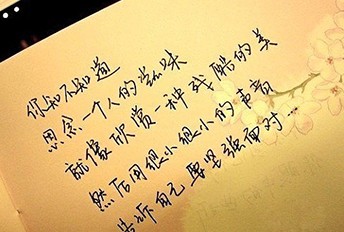 你知不知道
思念一个人的滋味
就像欣赏一种残酷的美
然后用很小很小的声音
告诉自己要坚强面对…